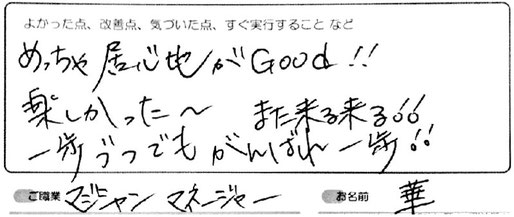 よかった点、改善点、気づいた点、すぐ実行すること など
めっちゃ居心地がGood!!
楽しかった〜 また来る来る!!
一歩づつでも がんばれ 一歩!!
ご職業 マジシャン マネージャー お名前 華